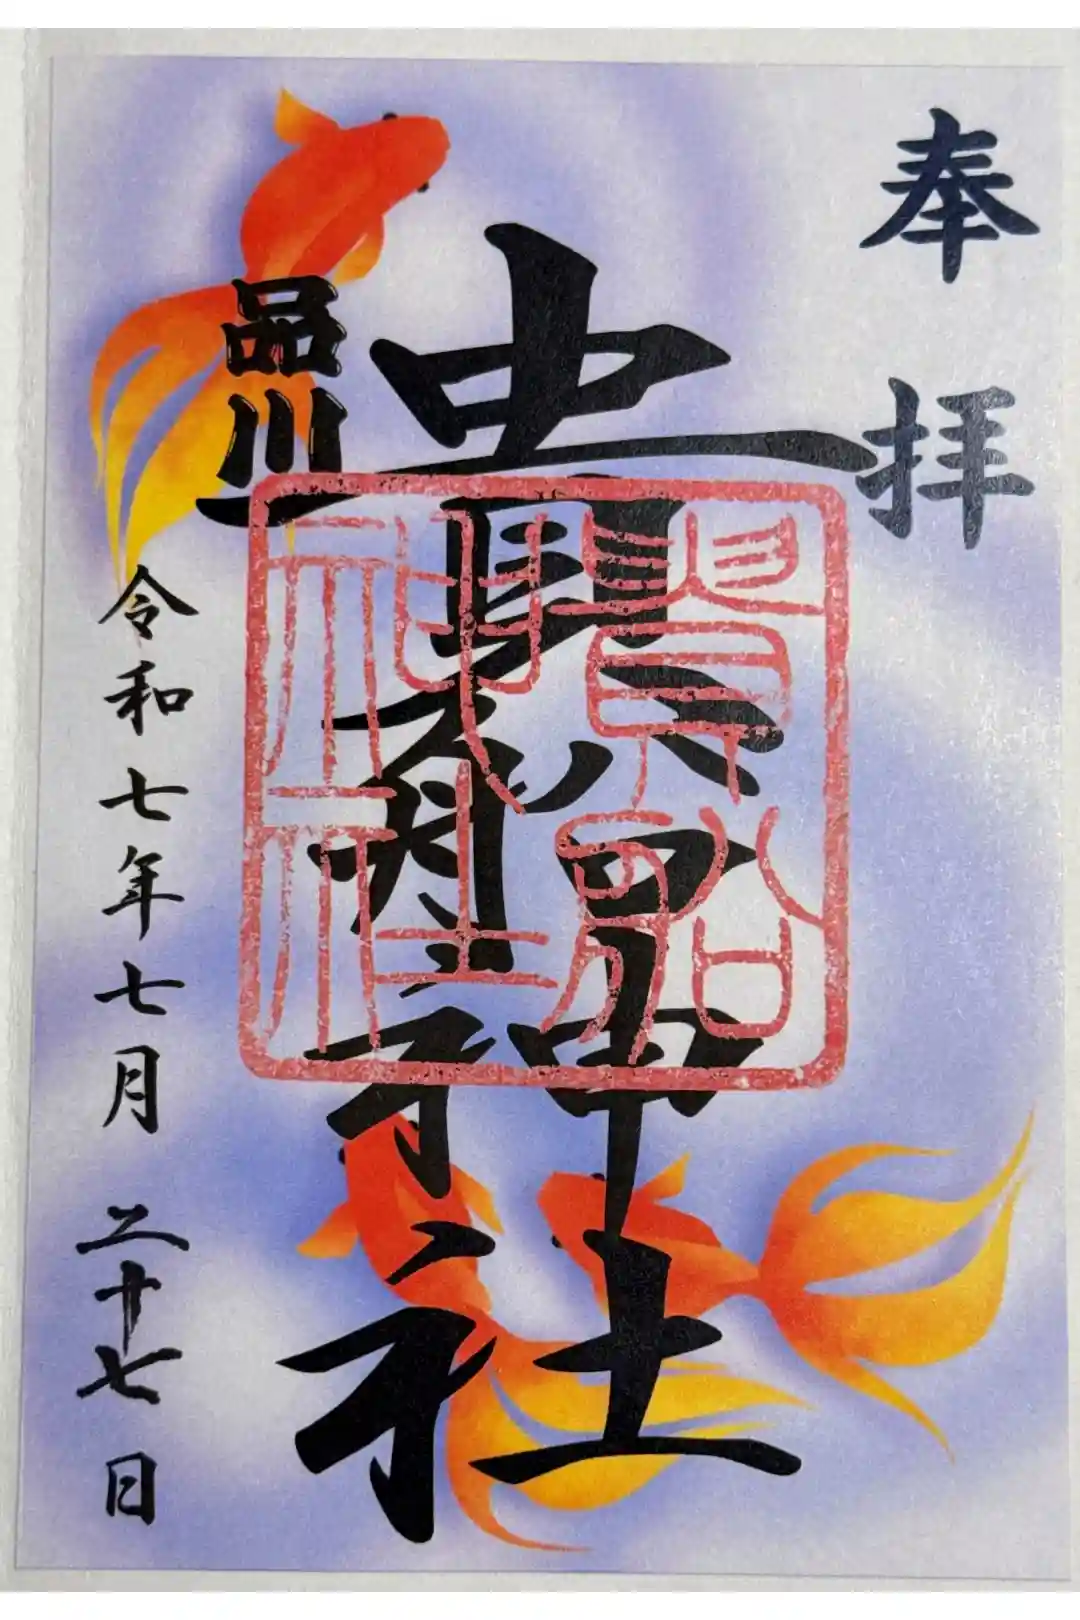 奉拝
品川
貴船神社
貴船
神社
令和七年七月二十七日